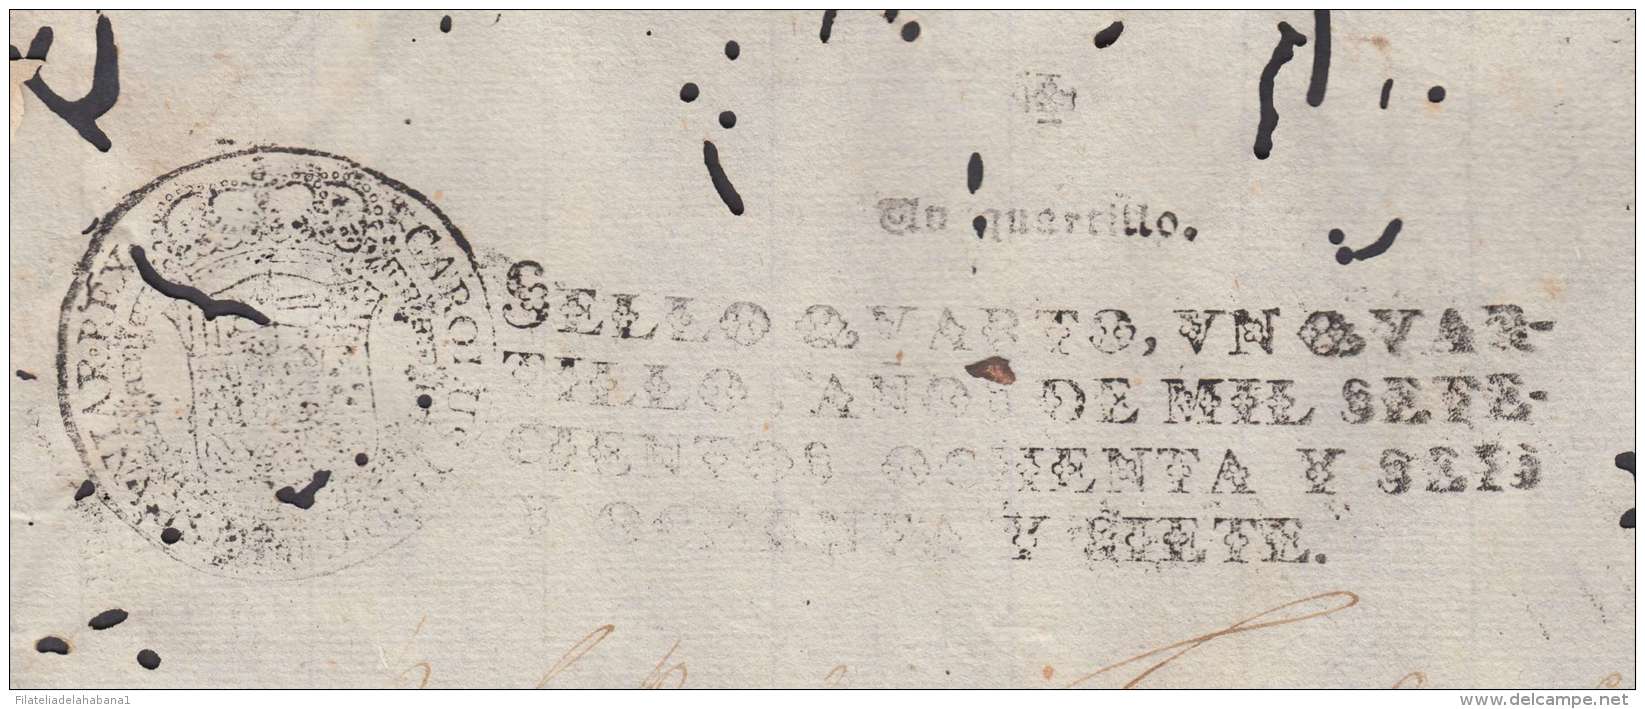 Un quartillo.
SELLO QVARTO, VN QVAR-
TILLO, AÑOS DE MIL SETE-
CIENTOS OCHENTA Y SEIS
Y OCHENTA Y SIETE.
CAROLUS
INDIAR.REX
Filateliadelahabana1
delcampe.net